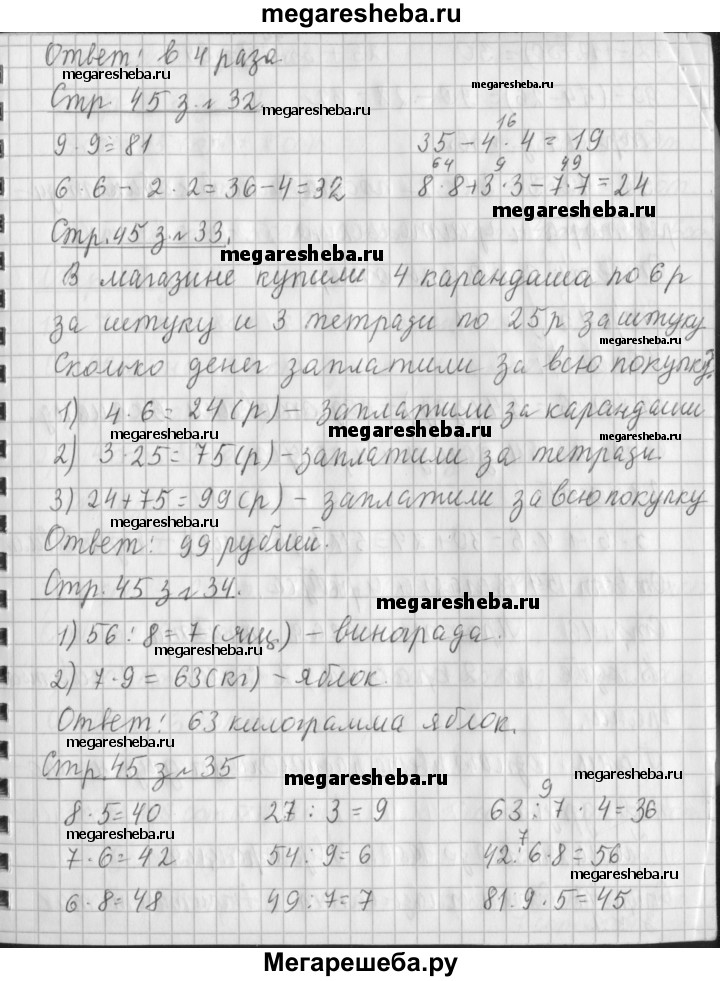 megaresheba.ru
Ответ: в 4 раза.
megaresheba.ru
megaresheba.ru
Стр. 45 з. № 32
megaresheba.ru
16
9 · 9 = 81
35 - 4 · 4 = 19
64 9 49
6 · 6 - 2 · 2 = 36 - 4 = 32
8 · 8 + 3 · 3 - 7 · 7 = 24
megaresheba.ru
Стр. 45 з. № 33.
megaresheba.ru
В магазине купили 4 карандаша по 6 р
за штуку и 3 тетради по 25 р за штуку
megaresheba.ru
Сколько денег заплатили за всю покупку?
megaresheba.ru
1) 4 · 6 = 24 (р) - заплатили за карандаши
megaresheba.ru
megaresheba.ru
megaresheba.ru
2) 3 · 25 = 75 (р) - заплатили за тетради.
3) 24 + 75 = 99 (р) - заплатили за всю покупку
megaresheba.ru
megaresheba.ru
Ответ: 99 рублей.
Стр. 45 з № 34.
megaresheba.ru
1) 56 : 8 = 7 (ящ) - винограда.
megaresheba.ru
megaresheba.ru
2) 7 · 9 = 63 (кг) - яблок.
Ответ: 63 килограмма яблок.
megaresheba.ru
megaresheba.ru
Стр. 45 з № 35
megaresheba.ru
megaresheba.ru
9
8 · 5 = 40
27 : 3 = 9
63 : 7 · 4 = 36
megaresheba.ru
megaresheba.ru
7
7 · 6 = 42
54 : 9 = 6
42 : 6 · 8 = 56
megaresheba.ru
megaresheba.ru
6 · 8 = 48
49 : 7 = 7
81 : 9 · 5 = 45
megaresheba.ru
Мегарешеба.ру